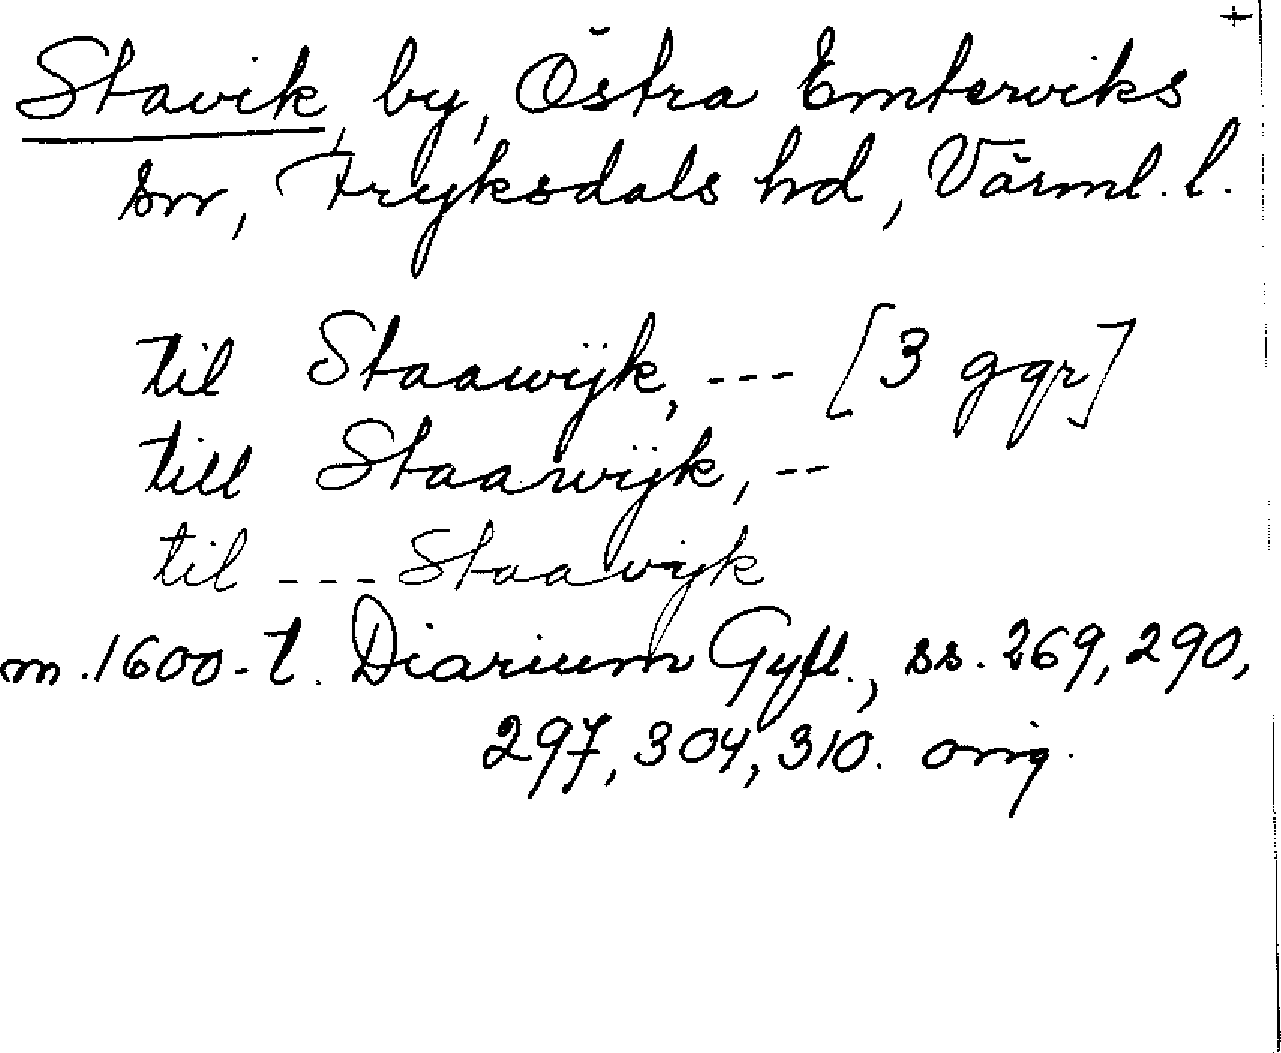 +
Stavik, by, Östra Emterviks
sn, Fryksdals hd, Värml. l.
til Staawijk, --- [3 ggr]
till Staawijk, --
til --- Staawijk
m. 1600-t. Diarium Gyll., ss. 269, 290,
297, 304, 310. orig.